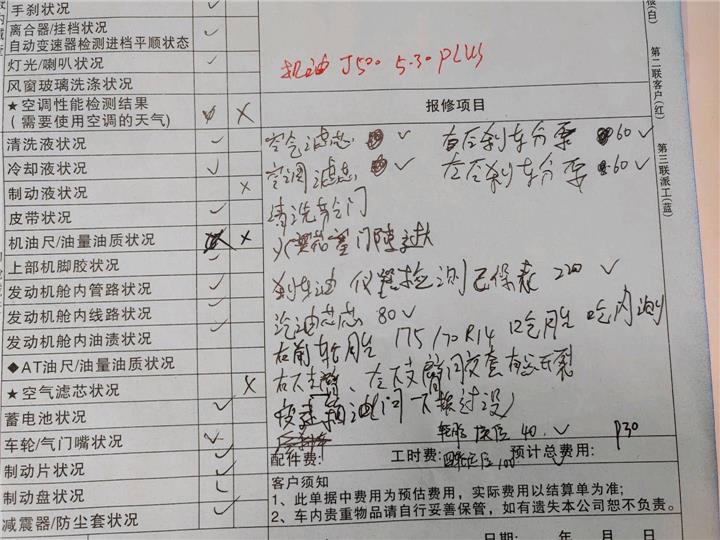 手刹状况
离合器/挂档状况
自动变速器检测进档平顺状态
灯光/喇叭状况
风窗玻璃洗涤状况
★空调性能检测结果
(需要使用空调的天气)
清洗液状况
冷却液状况
制动液状况
皮带状况
机油尺/油量油质状况
上部机脚胶状况
发动机舱内管路状况
发动机舱内线路状况
发动机舱内油渍状况
◆AT油尺/油量油质状况
★空气滤芯状况
蓄电池状况
车轮/气门嘴状况
制动片状况
制动盘状况
减震器/防尘套状况
机油 J500 5.30 PLUS
报修项目
空气滤芯 右后刹车分泵 60
空调滤芯 左后刹车分泵 60
清洗节门
火花塞
刹车油 检测 已保养 220
汽油芯芯 80
右前车胎 175/70R14 吃胎 吃内测
右 左支臂 胶套有
轮胎换位 40. P30
配件费: 工时费: 预计总费用:
四轮定位 100
客户须知
1、此单据中费用为预估费用,实际费用以结算单为准;
2、车内贵重物品请自行妥善保管,如有遗失本公司恕不负责。
日期: 年 月 日
(白)
第二联客户(红)
第三联派工(蓝)